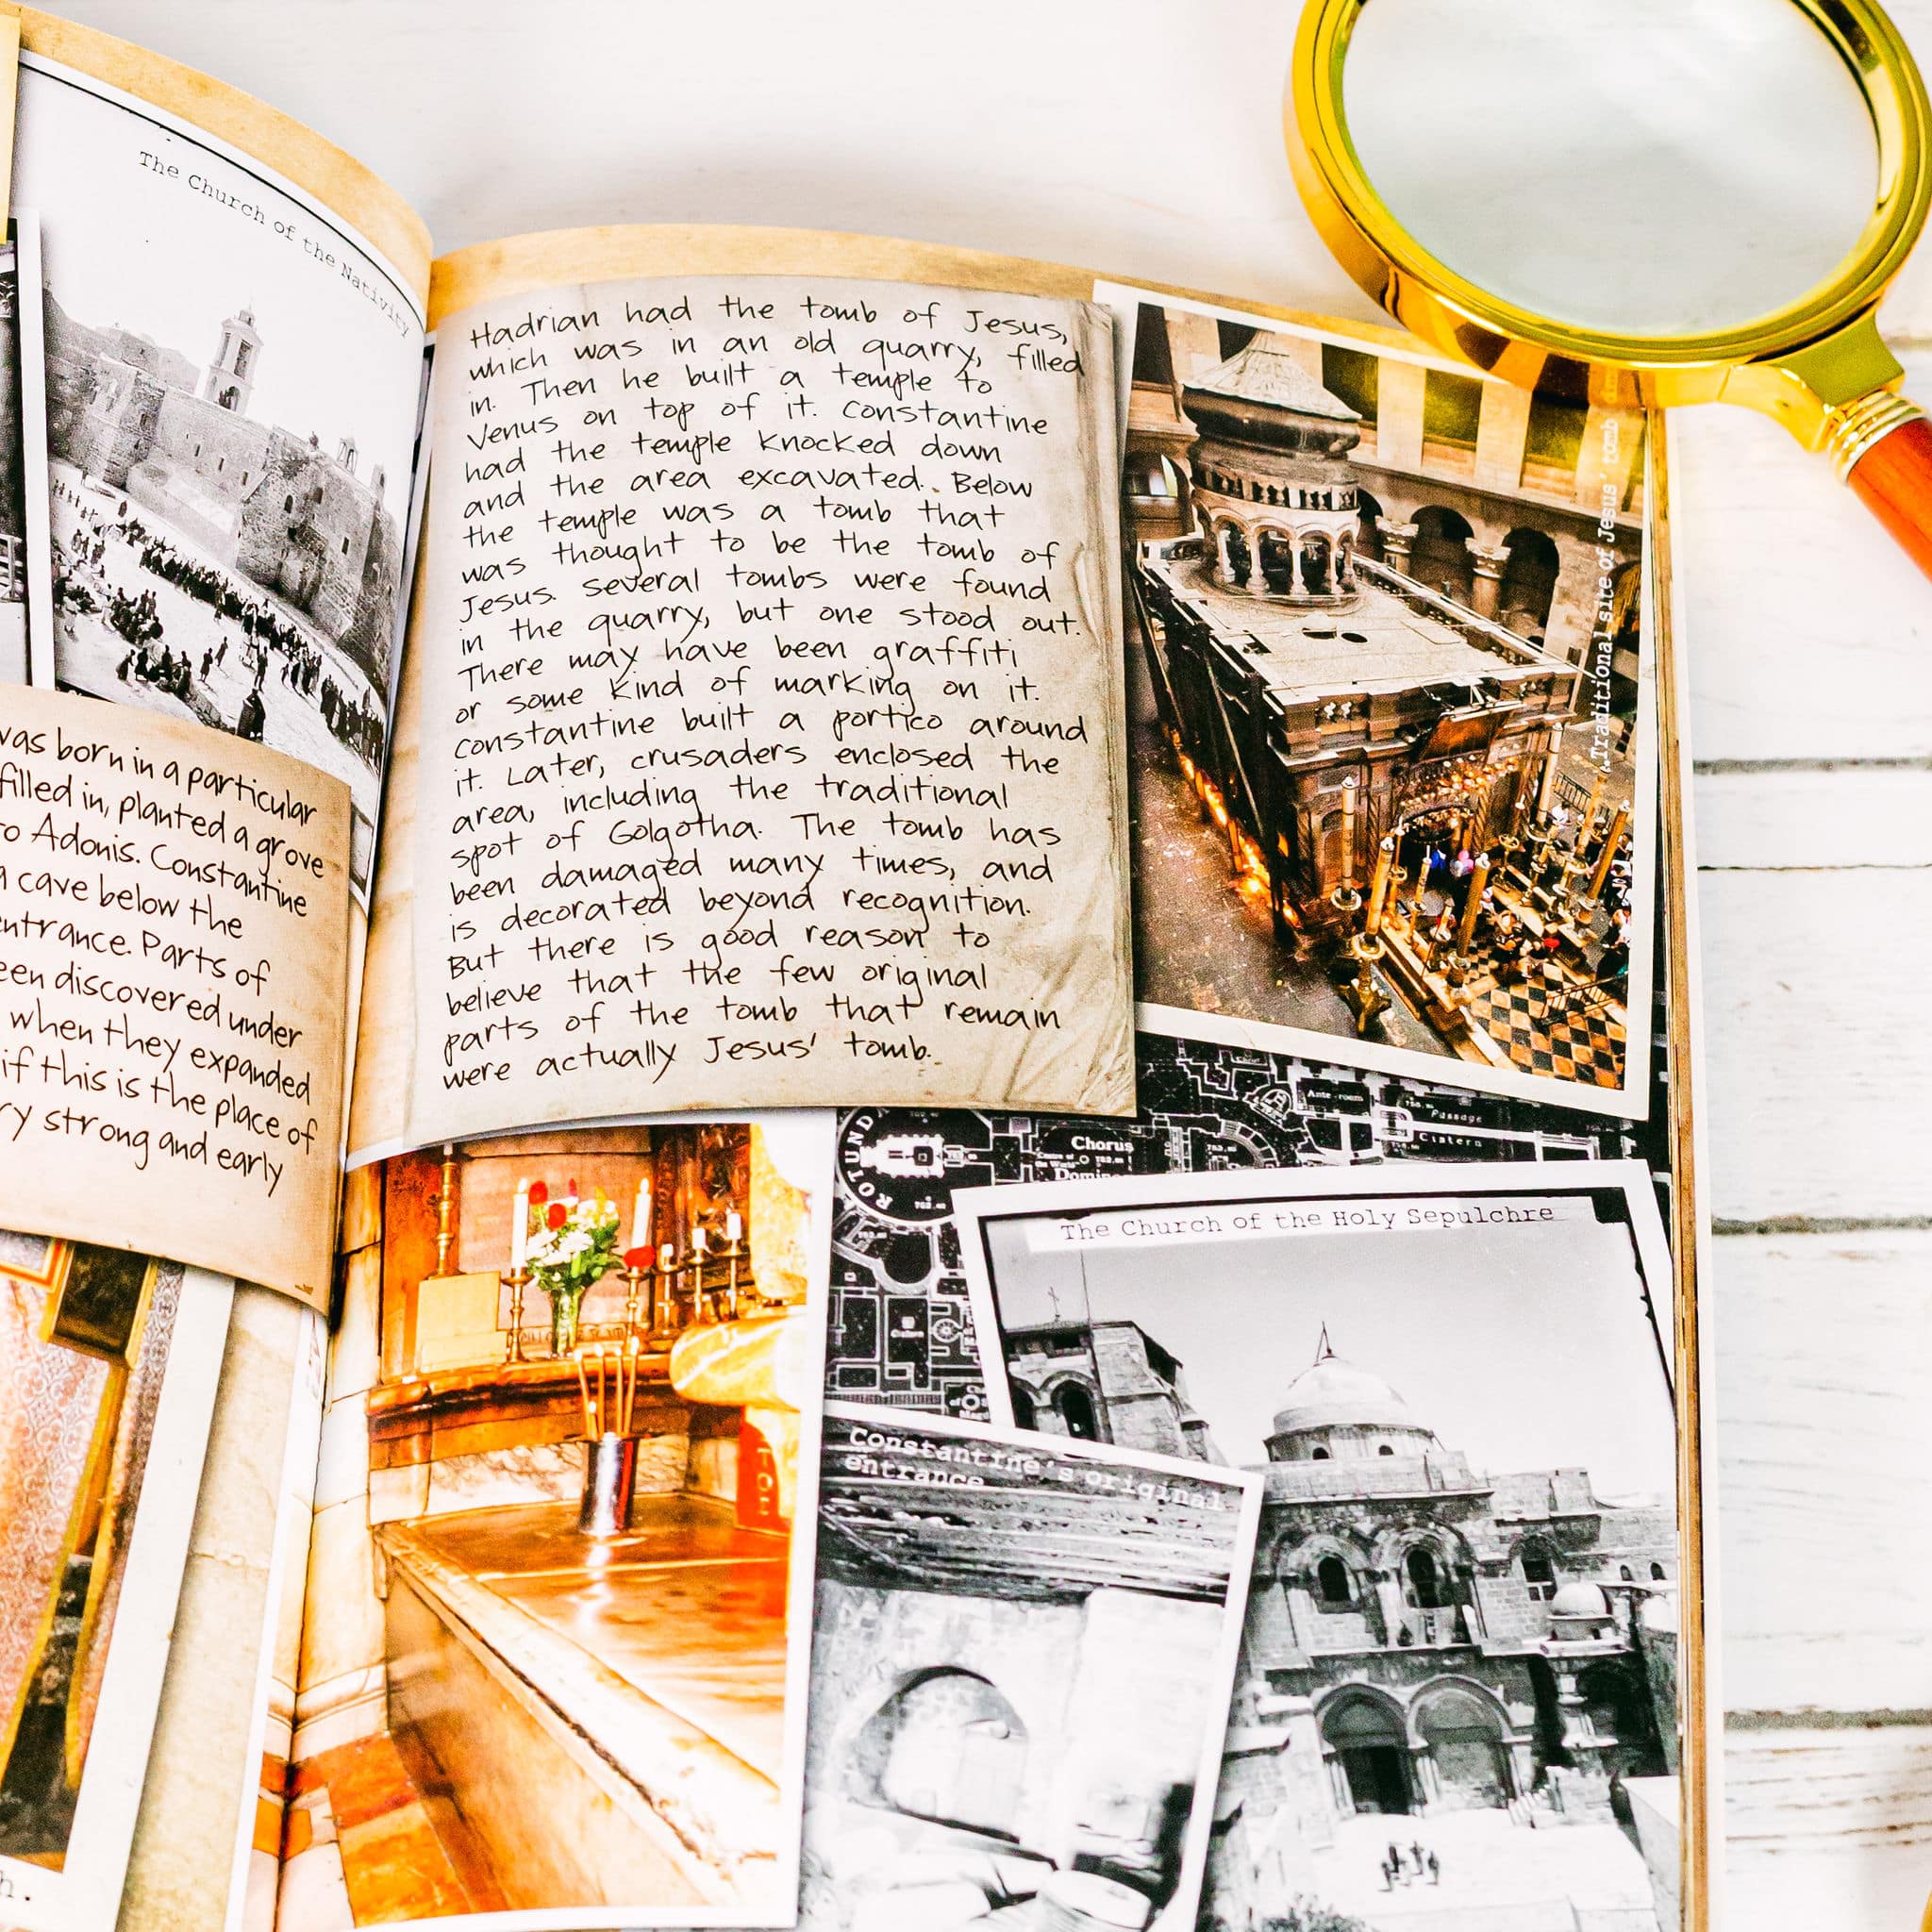 The Church of the Nativity
was born in a particular
filled in, planted a grove
to Adonis. Constantine
a cave below the
entrance. Parts of
been discovered under
when they expanded
if this is the place of
strong and early
h.
Hadrian had the tomb of Jesus,
which was in an old quarry, filled
in. Then he built a temple to
Venus on top of it. Constantine
had the temple knocked down
and the area excavated. Below
the temple was a tomb that
was thought to be the tomb of
Jesus. Several tombs were found
in the quarry, but one stood out.
There may have been graffiti
or some kind of marking on it.
Constantine built a portico around
it. Later, crusaders enclosed the
area, including the traditional
spot of Golgotha. The tomb has
been damaged many times, and
is decorated beyond recognition.
But there is good reason to
believe that the few original
parts of the tomb that remain
were actually Jesus' tomb.
Traditional site of Jesus' tomb
ROTUND
Chorus
Ante-room
Passage
Cistern
The Church of the Holy Sepulchre
Constantine's original
entrance